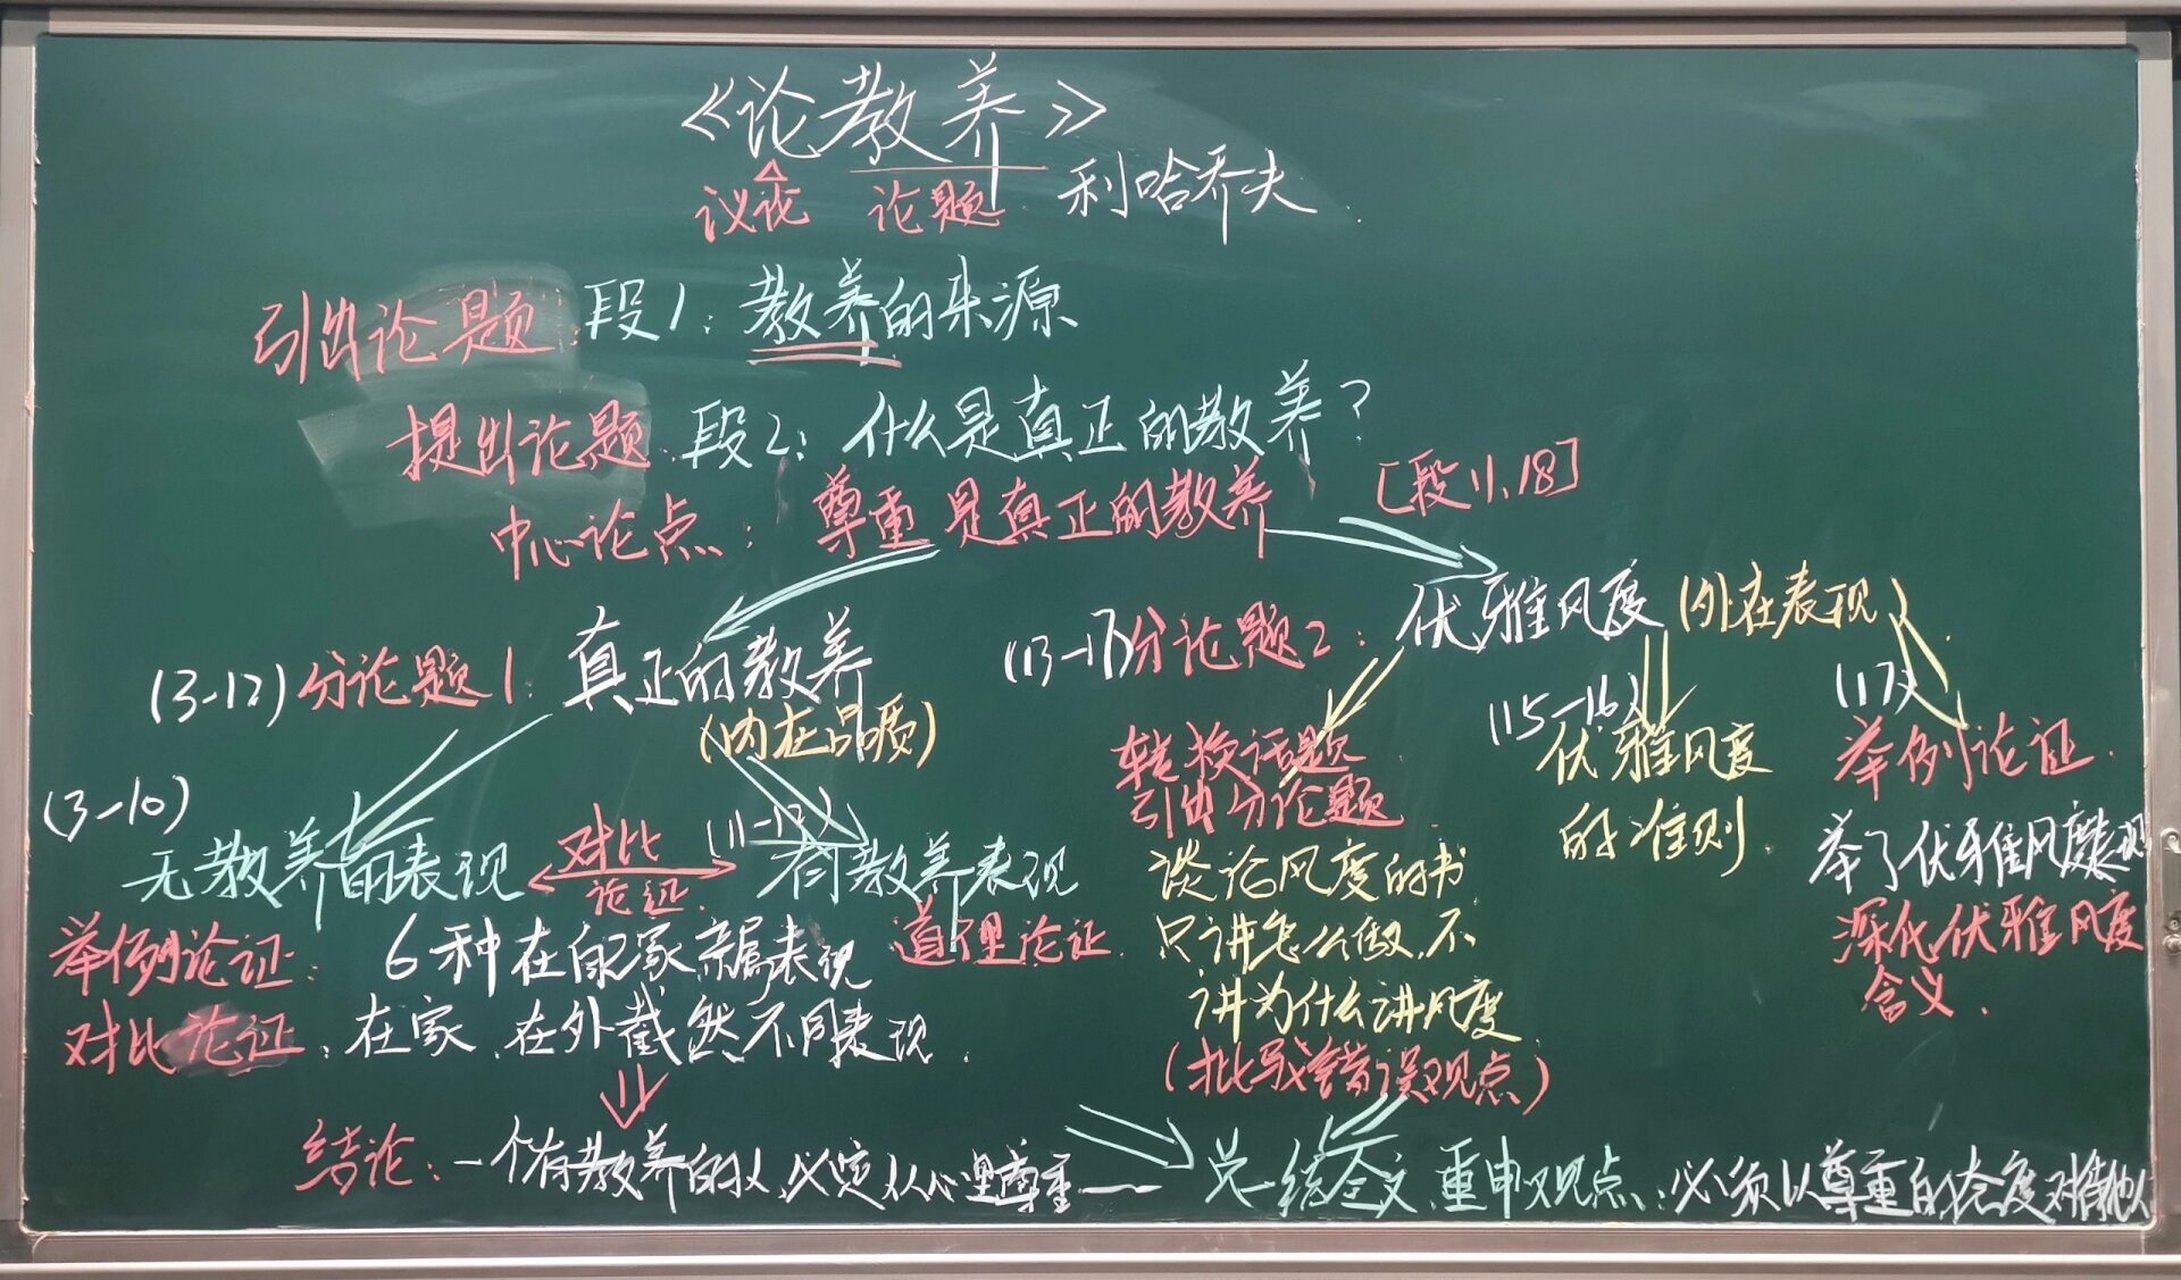 《论教养》
议论 论题 利哈乔夫
引出论题 段1：教养的来源
提出论题 段2：什么是真正的教养？
中心论点：尊重是真正的教养 [段11、18]
(3-12)分论题1：真正的教养
(内在品质)
(3-10)
无教养的表现
对比
论证
(11-12)
有教养表现
举例论证：6种在自家亲属表现
道理论证
对比论证：在家、在外截然不同表现
结论：一个有教养的人，必定从心里尊重——
(13-17)分论题2：优雅风度(外在表现)
转换话题
引出分论题
谈论风度的书
只讲怎么做，不
讲为什么讲风度
(批驳错误观点)
(15-16)
优雅风度
的准则
(17)
举例论证
举了优雅风度表现
深化优雅风度
含义
总结全文，重申观点：必须以尊重的态度对待他人